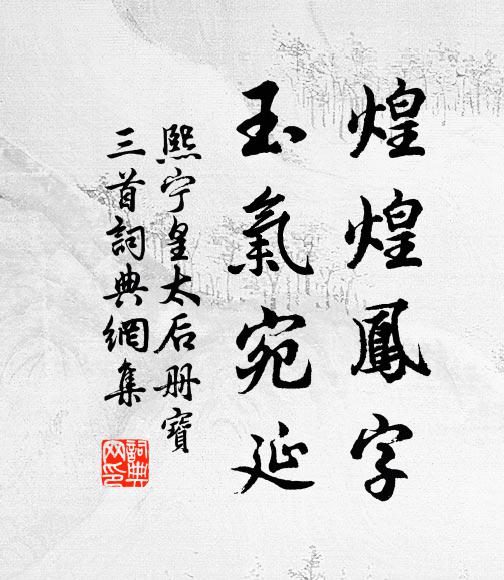 煌煌鳳字
玉氣宛延
熙宁皇太后册寶
三首詞典網集
詞典网印